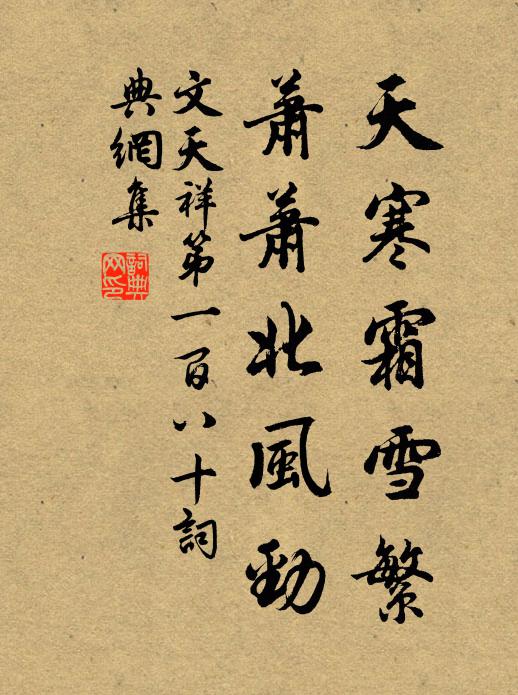 天寒霜雪繁
蕭蕭北風勁
文天祥第一百八十詞
典網集
詞典
网印